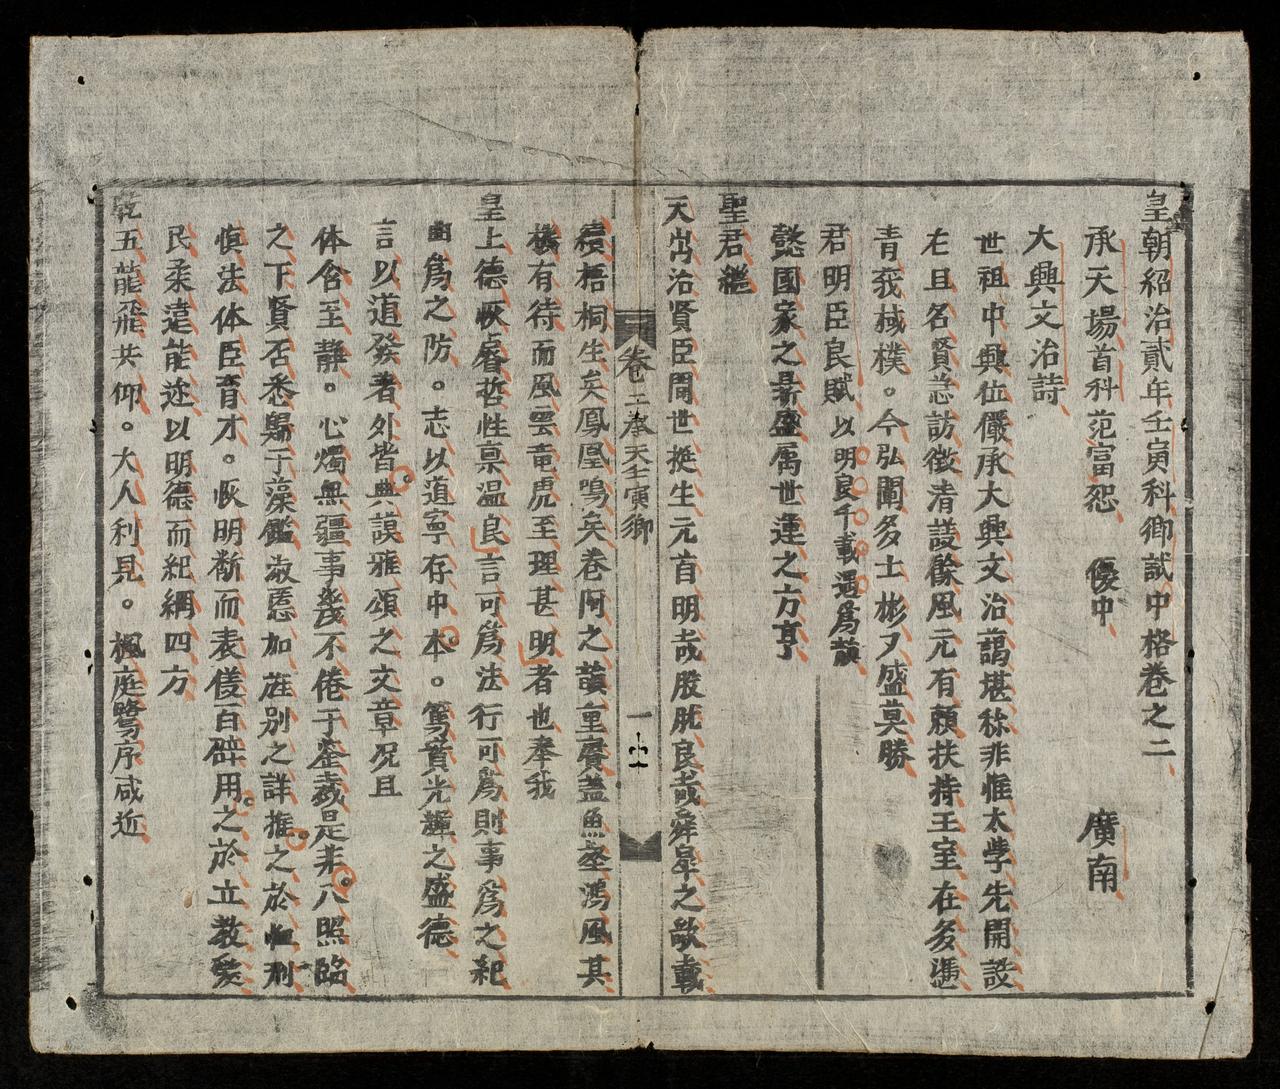 皇朝紹治貳年壬寅科鄉試中格卷之二
承天場首科范富恕 優中 廣南
大興文治詩
世祖中興位儼承大興文治藹堪称非惟太學先開設
右且名賢急訪徵清議餘風元有賴扶持王室在多憑
青莪棫樸。今弘闡多士彬夕盛莫勝
君明臣良賦 以明良千載遇為韻
懿國家之景盛厲世運之方亨
聖君繼
天出治賢臣間世挺生元首明哉股肱良哉舜皋之歌載
卷二承天壬寅鄉 一
續梧桐生矣鳳凰鳴矣卷阿之韻重賡蓋魚丞鴻風其
機有待而風雲竜虎至理甚明者也奉我
皇上德恢睿哲性稟温良言可為法行可為則事為之紀
曲為之防。志以道寧存中本。篤實光輝之盛德
言以道發著外皆典謨雅頌之文章况且
体含至靜。心燭無疆事幾不倦于釐裁是非八照臨
之下賢否悉歸于藻鑑淑慝加旌别之詳推之於恤刑
慎法体臣育才。恢明断而表儀百辟用之於立教髮
民柔遠能迩以明德而紀綱四方
乾五龍飛共仰。大人利見。楓庭鷺序咸近